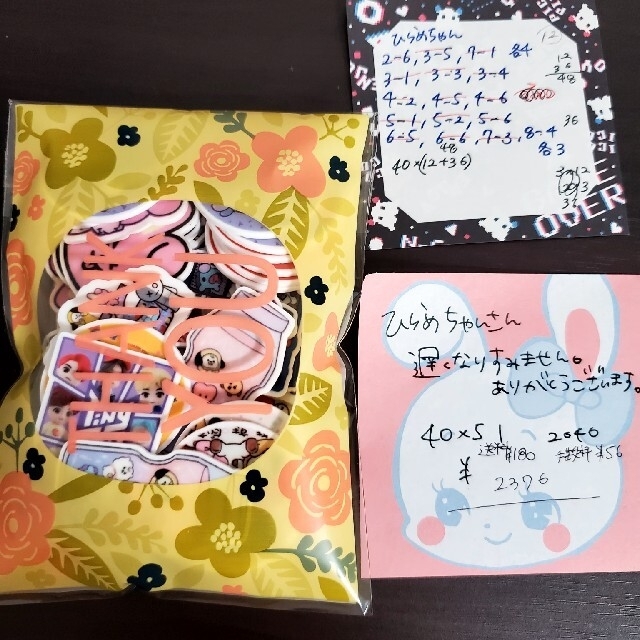 ひらめちゃん 12
2-6, 3-5, 7-1 各4
3-1, 3-3, 3-4
4-2, 4-5, 4-6
5-1, 5-2, 5-6
6-5, 6-6, 7-3, 8-4
各3
48
40×(12+36)
12
36
48
36
OVER
THANK
YOU
Tiny
ひらめちゃんさん
遅くなりすみません。
ありがとうございます。
40×51 2040
送料¥180
¥156
¥ 2376